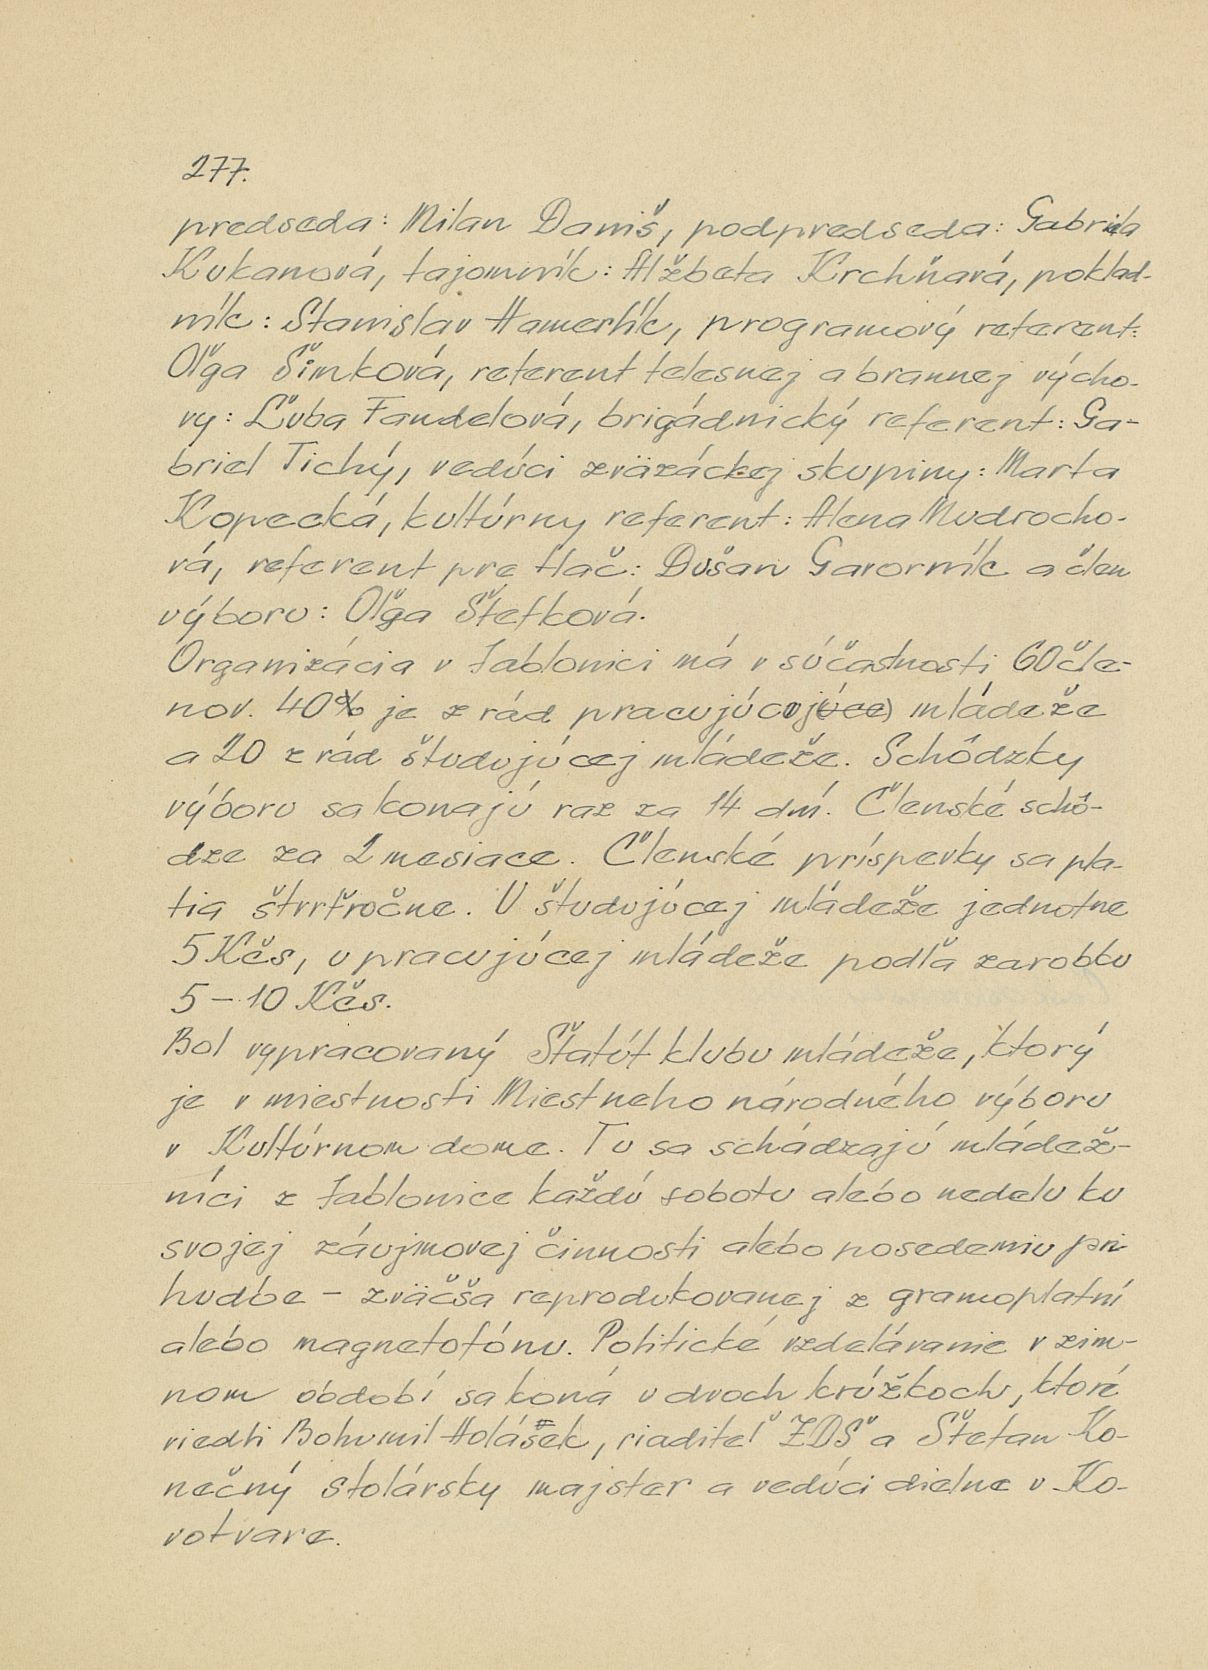 277.
predseda: Milan Daniš, podpredseda: Gabriela
Kukanová, tajomník: Alžbeta Krchňavá, poklad-
ník: Stanislav Hamerlík, programový referent:
Oľga Šimková, referent telesnej a brannej výcho-
vy: Ľuba Fandelová, brigádnický referent: Ga-
briel Tichý, vedúci zväzáckej skupiny: Marta
Kopecká, kultúrny referent: Alena Mudrocho-
vá, referent pre tlač: Dušan Gavorník a člen
výboru: Oľga Štefková.
Organizácia v Jablonici má v súčastnosti 60 čle-
nov. 40% je z rád pracujúcej mládeže
a 20 z rád študujúcej mládeže. Schôdzky
výboru sa konajú raz za 14 dní. Členské schô-
dze za 2 mesiace. Členské príspevky sa pla-
tia štvrťročne. U študujúcej mládeže jednotne
5 Kčs, u pracujúcej mládeže podľa zarobku
5 – 10 Kčs.
Bol vypracovaný Štatút klubu mládeže, ktorý
je v miestnosti Miestneho národného výboru
v Kultúrnom dome. Tu sa schádzajú mládež-
níci z Jablonice každú sobotu alebo nedelu ku
svojej záujmovej činnosti alebo posedeniu pri
hudbe – zväčša reprodukovanej z gramoplatní
alebo magnetofónu. Politické vzdelávanie v zim-
nom období sa koná v dvoch krúžkoch, ktoré
viedli Bohumil Holášek, riaditeľ ZDŠ a Štefan Ko-
nečný stolársky majster a vedúci dielne v Ko-
votvare.